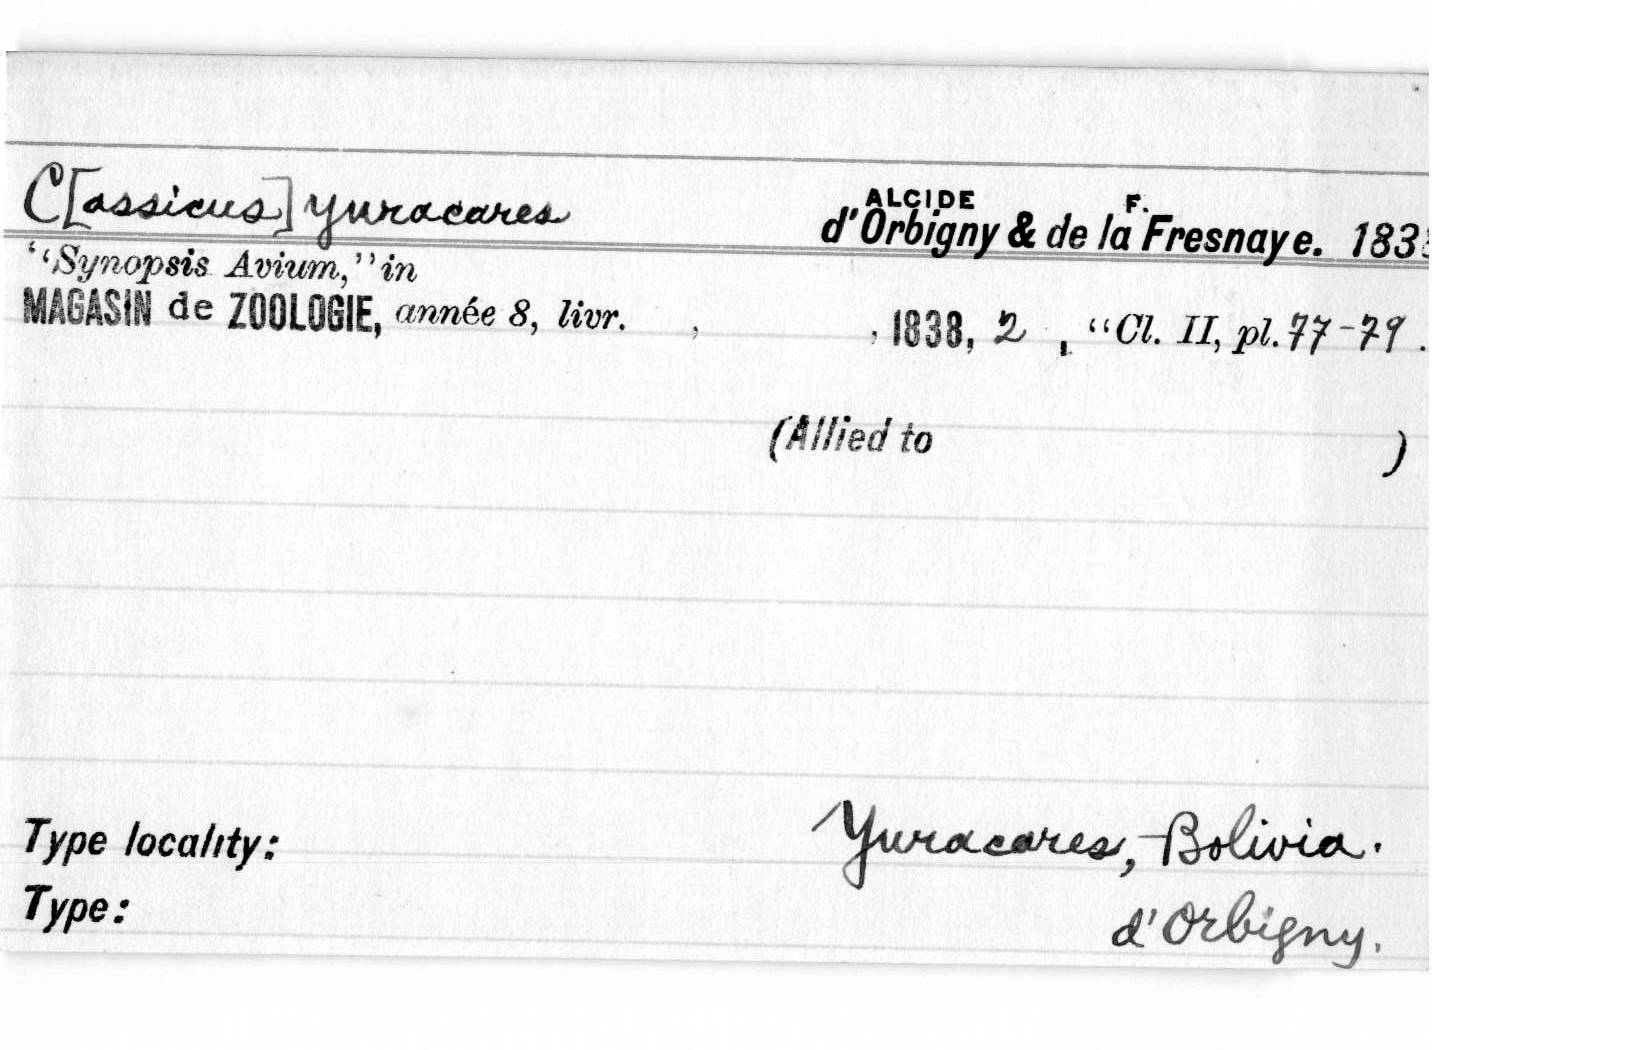 C[assicus] yuracares
ALCIDE F.
d'Orbigny & de la Fresnaye. 183
"Synopsis Avium," in
MAGASIN de ZOOLOGIE, année 8, livr. , , 1838, 2 , "Cl. II, pl. 77-79.
(Allied to )
Type locality: Yuracares, Bolivia.
Type: d'Orbigny.